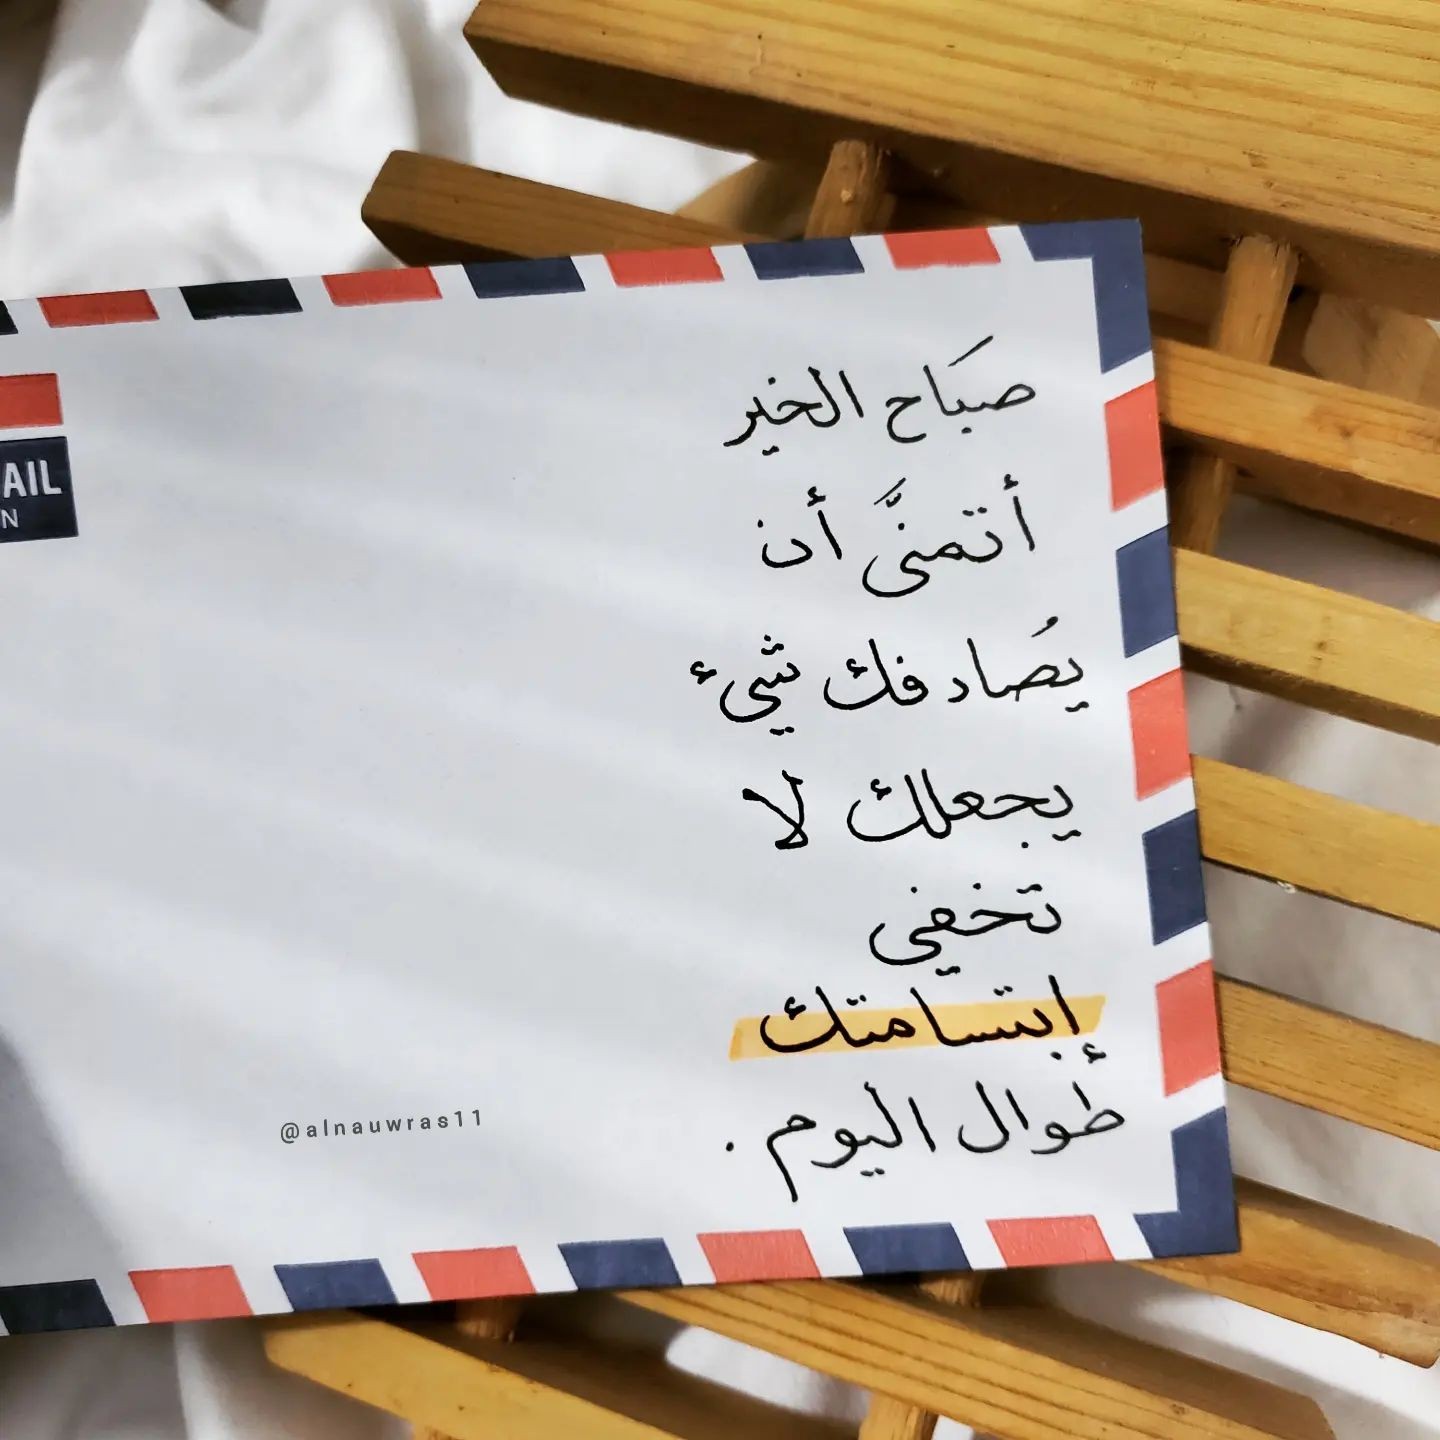 صبَاح الخير
أتمنىَّ أن
يُصادفك شيء
يجعلك لا
تخفي
إبتسامتك
طوال اليوم .
AIL
N
@alnauwras11